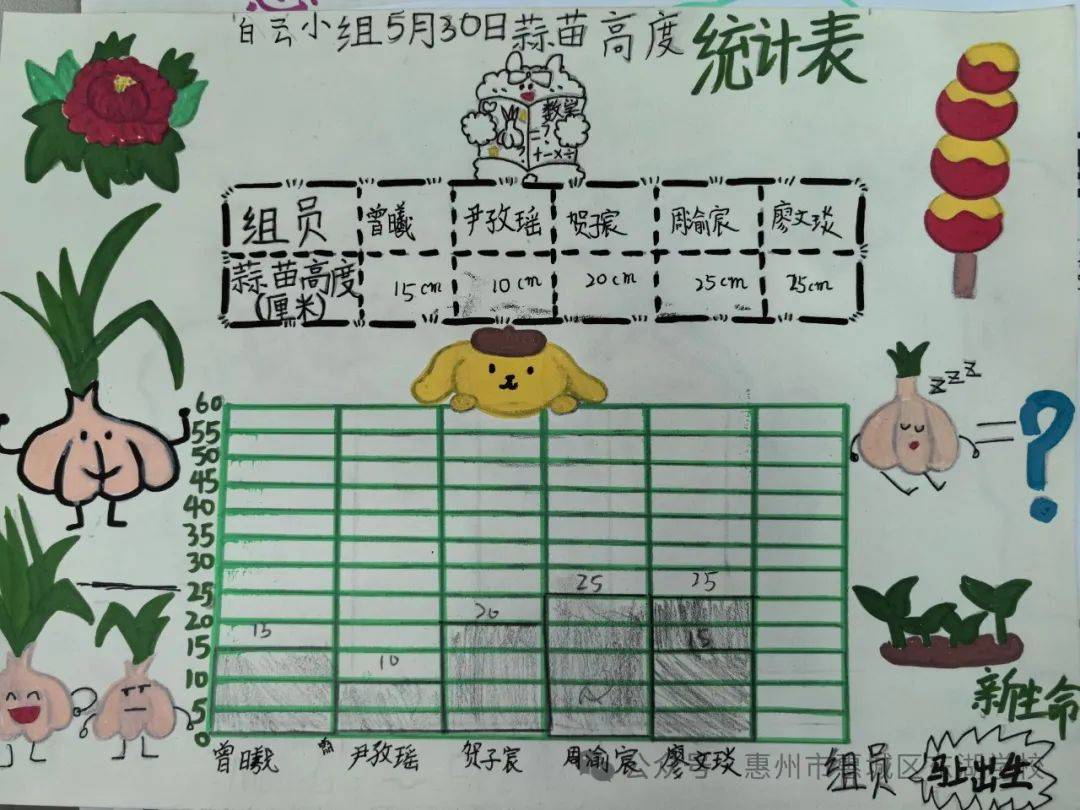 白云小组5月30日蒜苗高度统计表
数学
=?
+-×÷
组员 曾曦 尹孜瑶 贺子宸 周渝宸 廖文琰
蒜苗高度(厘米) 15cm 10cm 20cm 25cm 25cm
60
55
50
45
40
35
30
25
20
15
10
5
0
15 10 20 25 25
15
曾曦 尹孜瑶 贺子宸 周渝宸 廖文琰
zzz
=?
新生命
组员 马上出生
公众号 惠州市惠城区